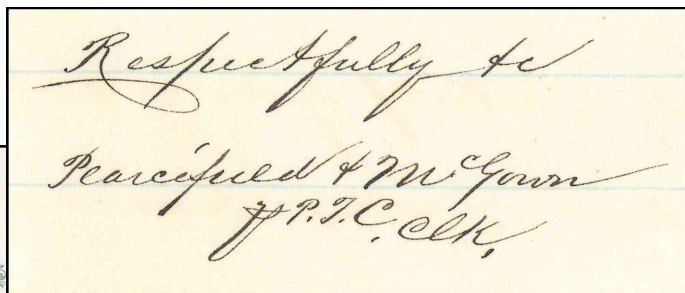 Respectfully &c
Pearcifield & McGown
pr P.T.C. Clk,